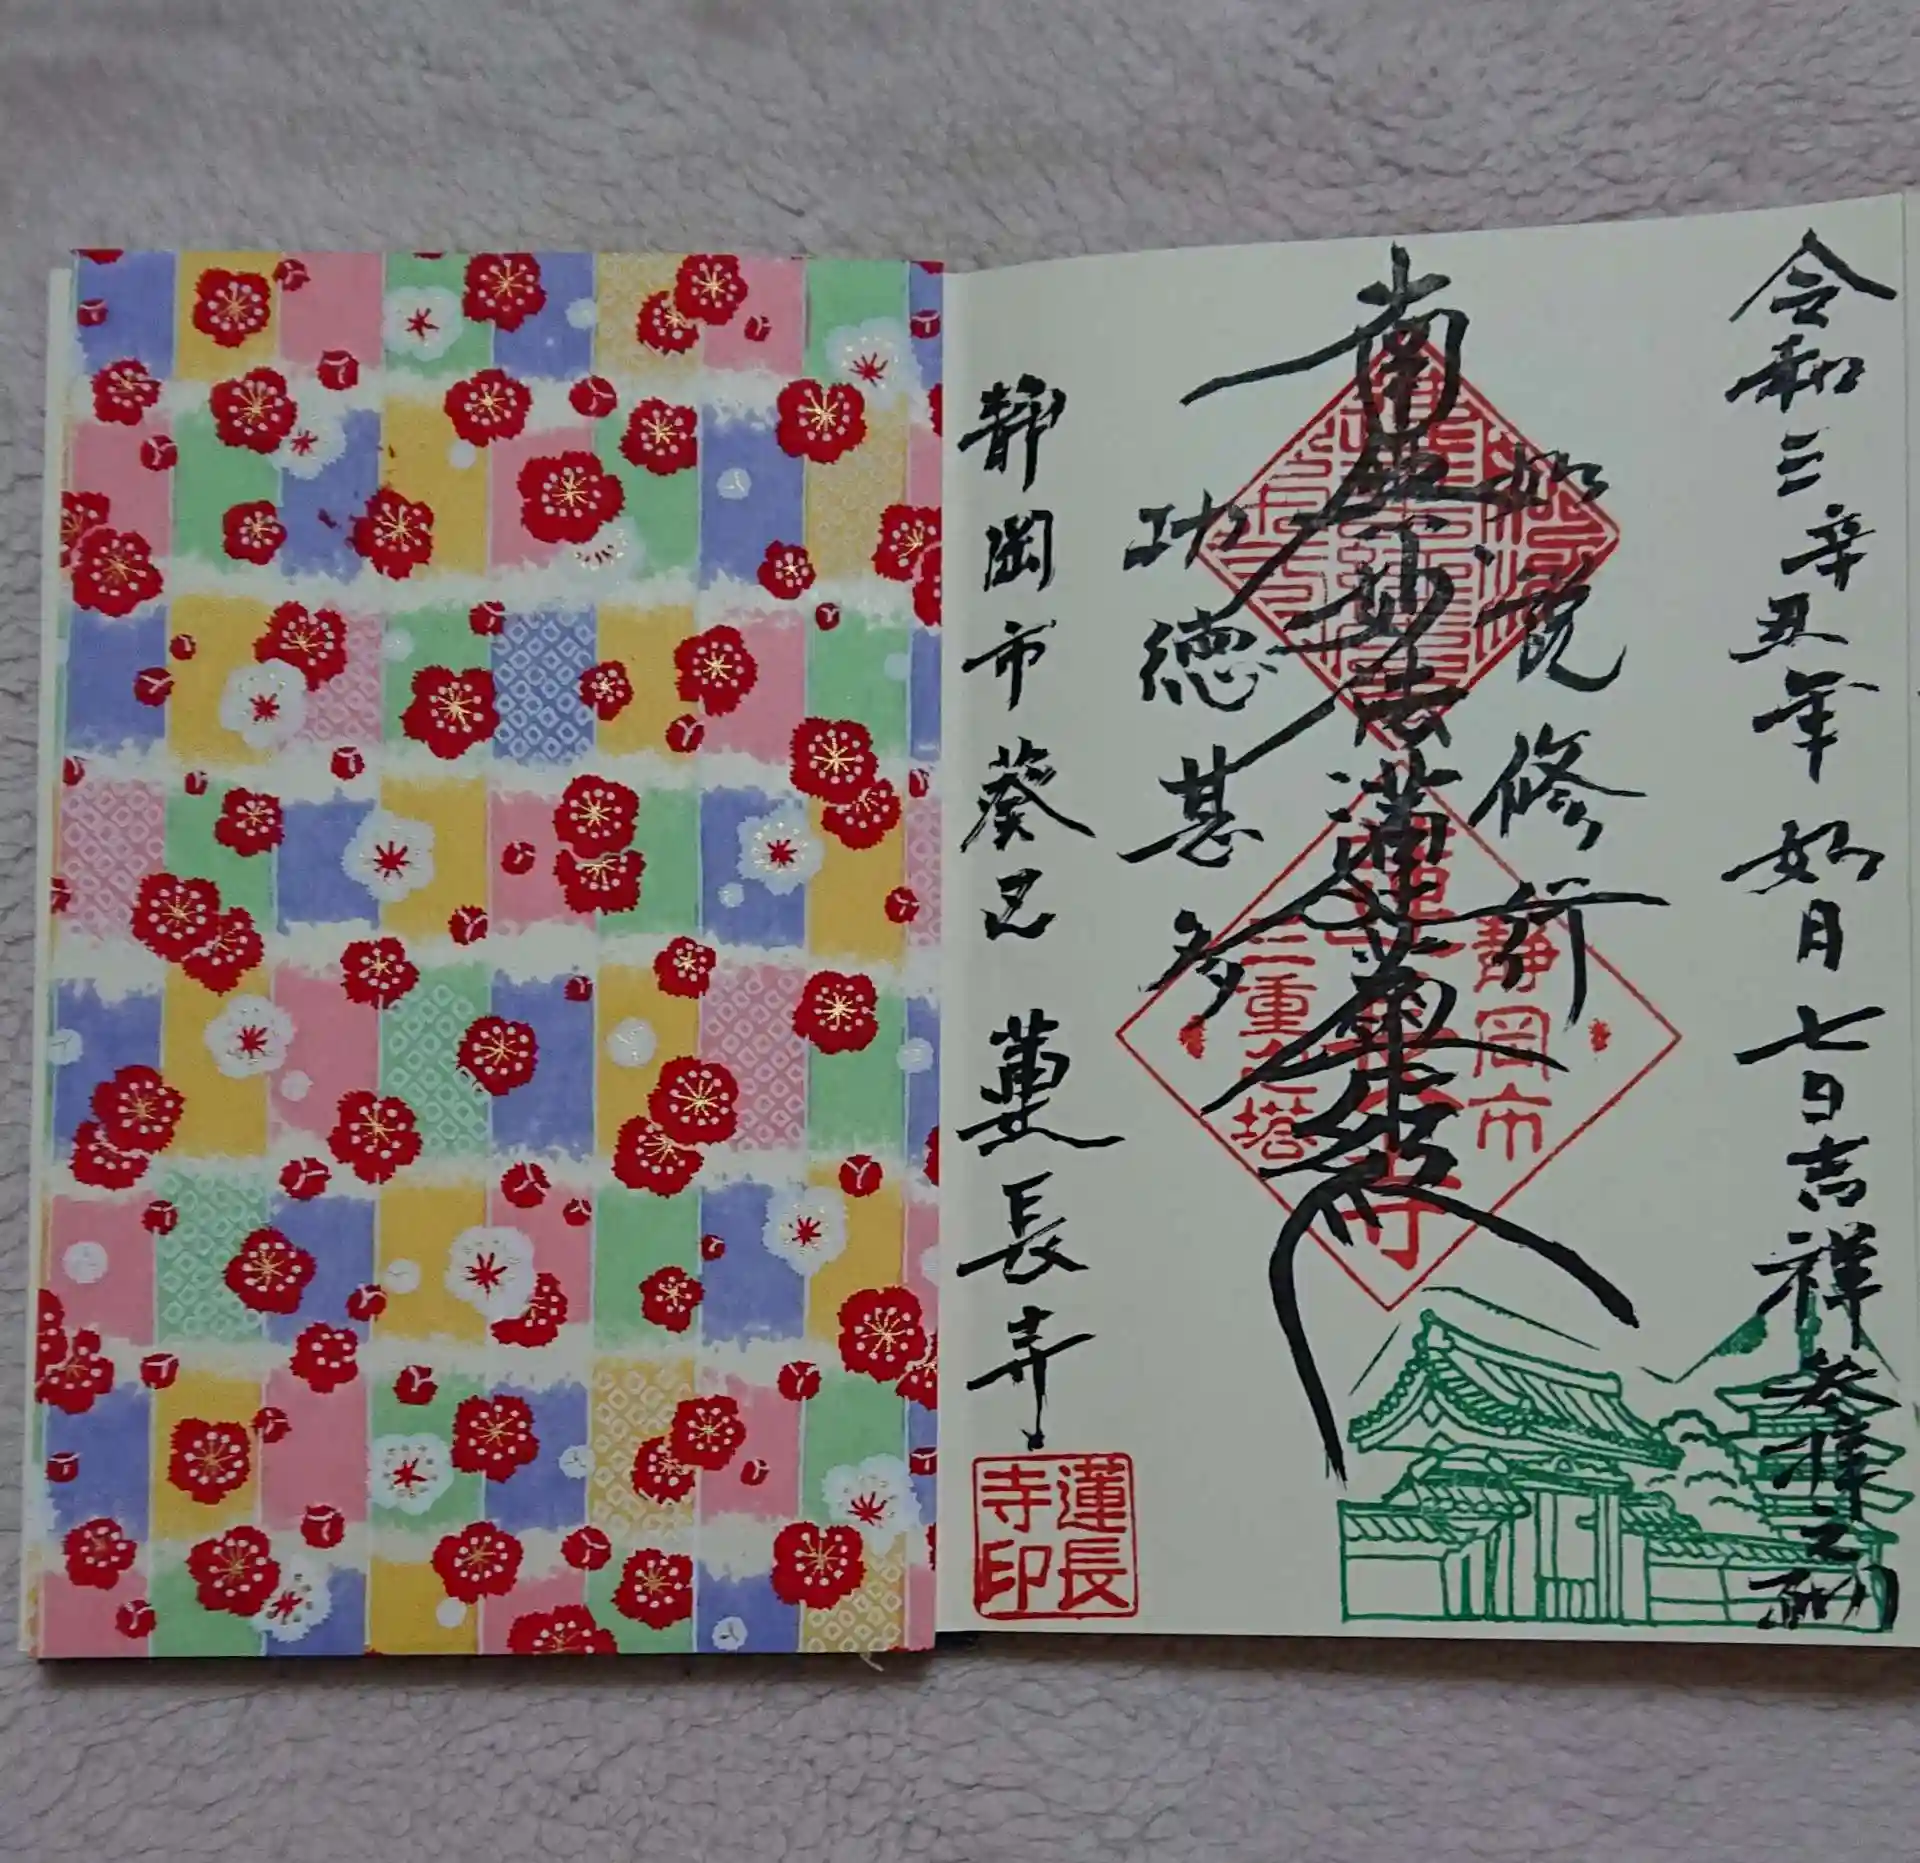 令和三辛丑年 如月七日吉祥参拝之砌
如説修行
南無妙法蓮華経
功徳甚多
静岡市
三重之塔
静岡市葵区 蓮長寺
蓮長
寺印